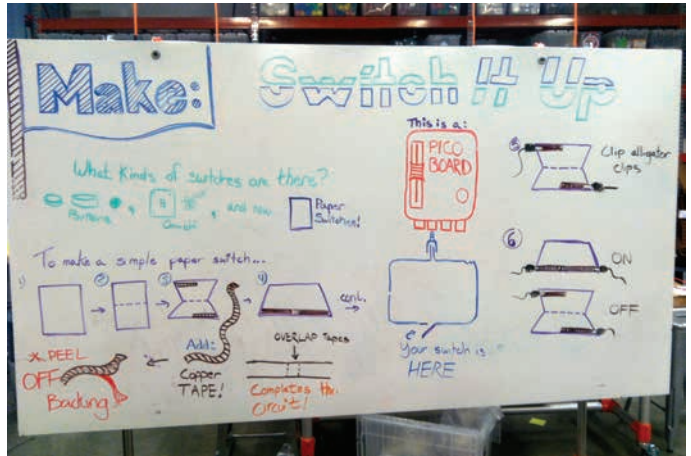 Make:
Switch It Up
What kinds of switches are there?
Buttons
, and now
Paper
Switches!
To make a simple paper switch...
1)
2)
3)
4)
cont.
Add:
Copper
TAPE!
* PEEL
OFF
Backing
OVERLAP Tapes
Completes the
Circuit!
This is a:
PICO
BOARD
Your switch is
HERE
5
Clip alligator
clips
6
ON
OFF